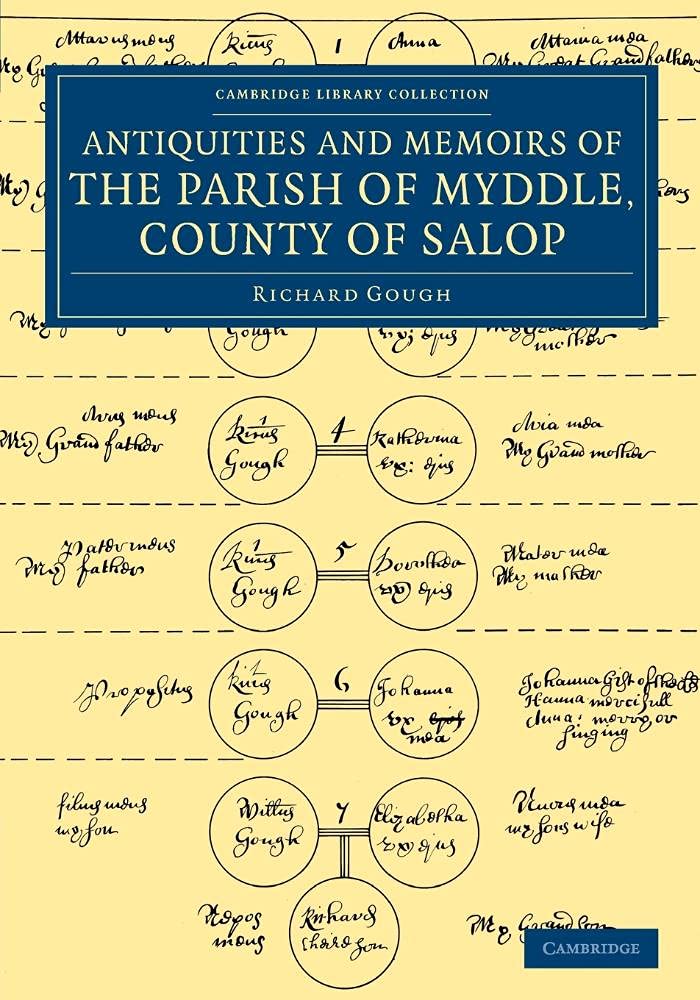 Attavus meus
Ricus
1
Anna
Attavia mea
My Great Grandfathers
CAMBRIDGE LIBRARY COLLECTION
ANTIQUITIES AND MEMOIRS OF
THE PARISH OF MYDDLE,
COUNTY OF SALOP
RICHARD GOUGH
Gough
ux: ejus
mother
Avus meus
My Grandfather
Ricus
Gough
4
Katherina
ux: ejus
Avia mea
My Grand mother
Pater meus
My father
Ricus
Gough
5
Dorothea
ux ejus
Mater mea
My mother
Propositus
Ricus
Gough
6
Johanna
ux
mea
Johanna Gift of the
Hanna mercifull
Anna: merry or
singing
filius meus
my son
Willus
Gough
7
Elizabetha
ux ejus
Nurus mea
my sons wife
Nepos
meus
Richard
their son
My Grandson
CAMBRIDGE